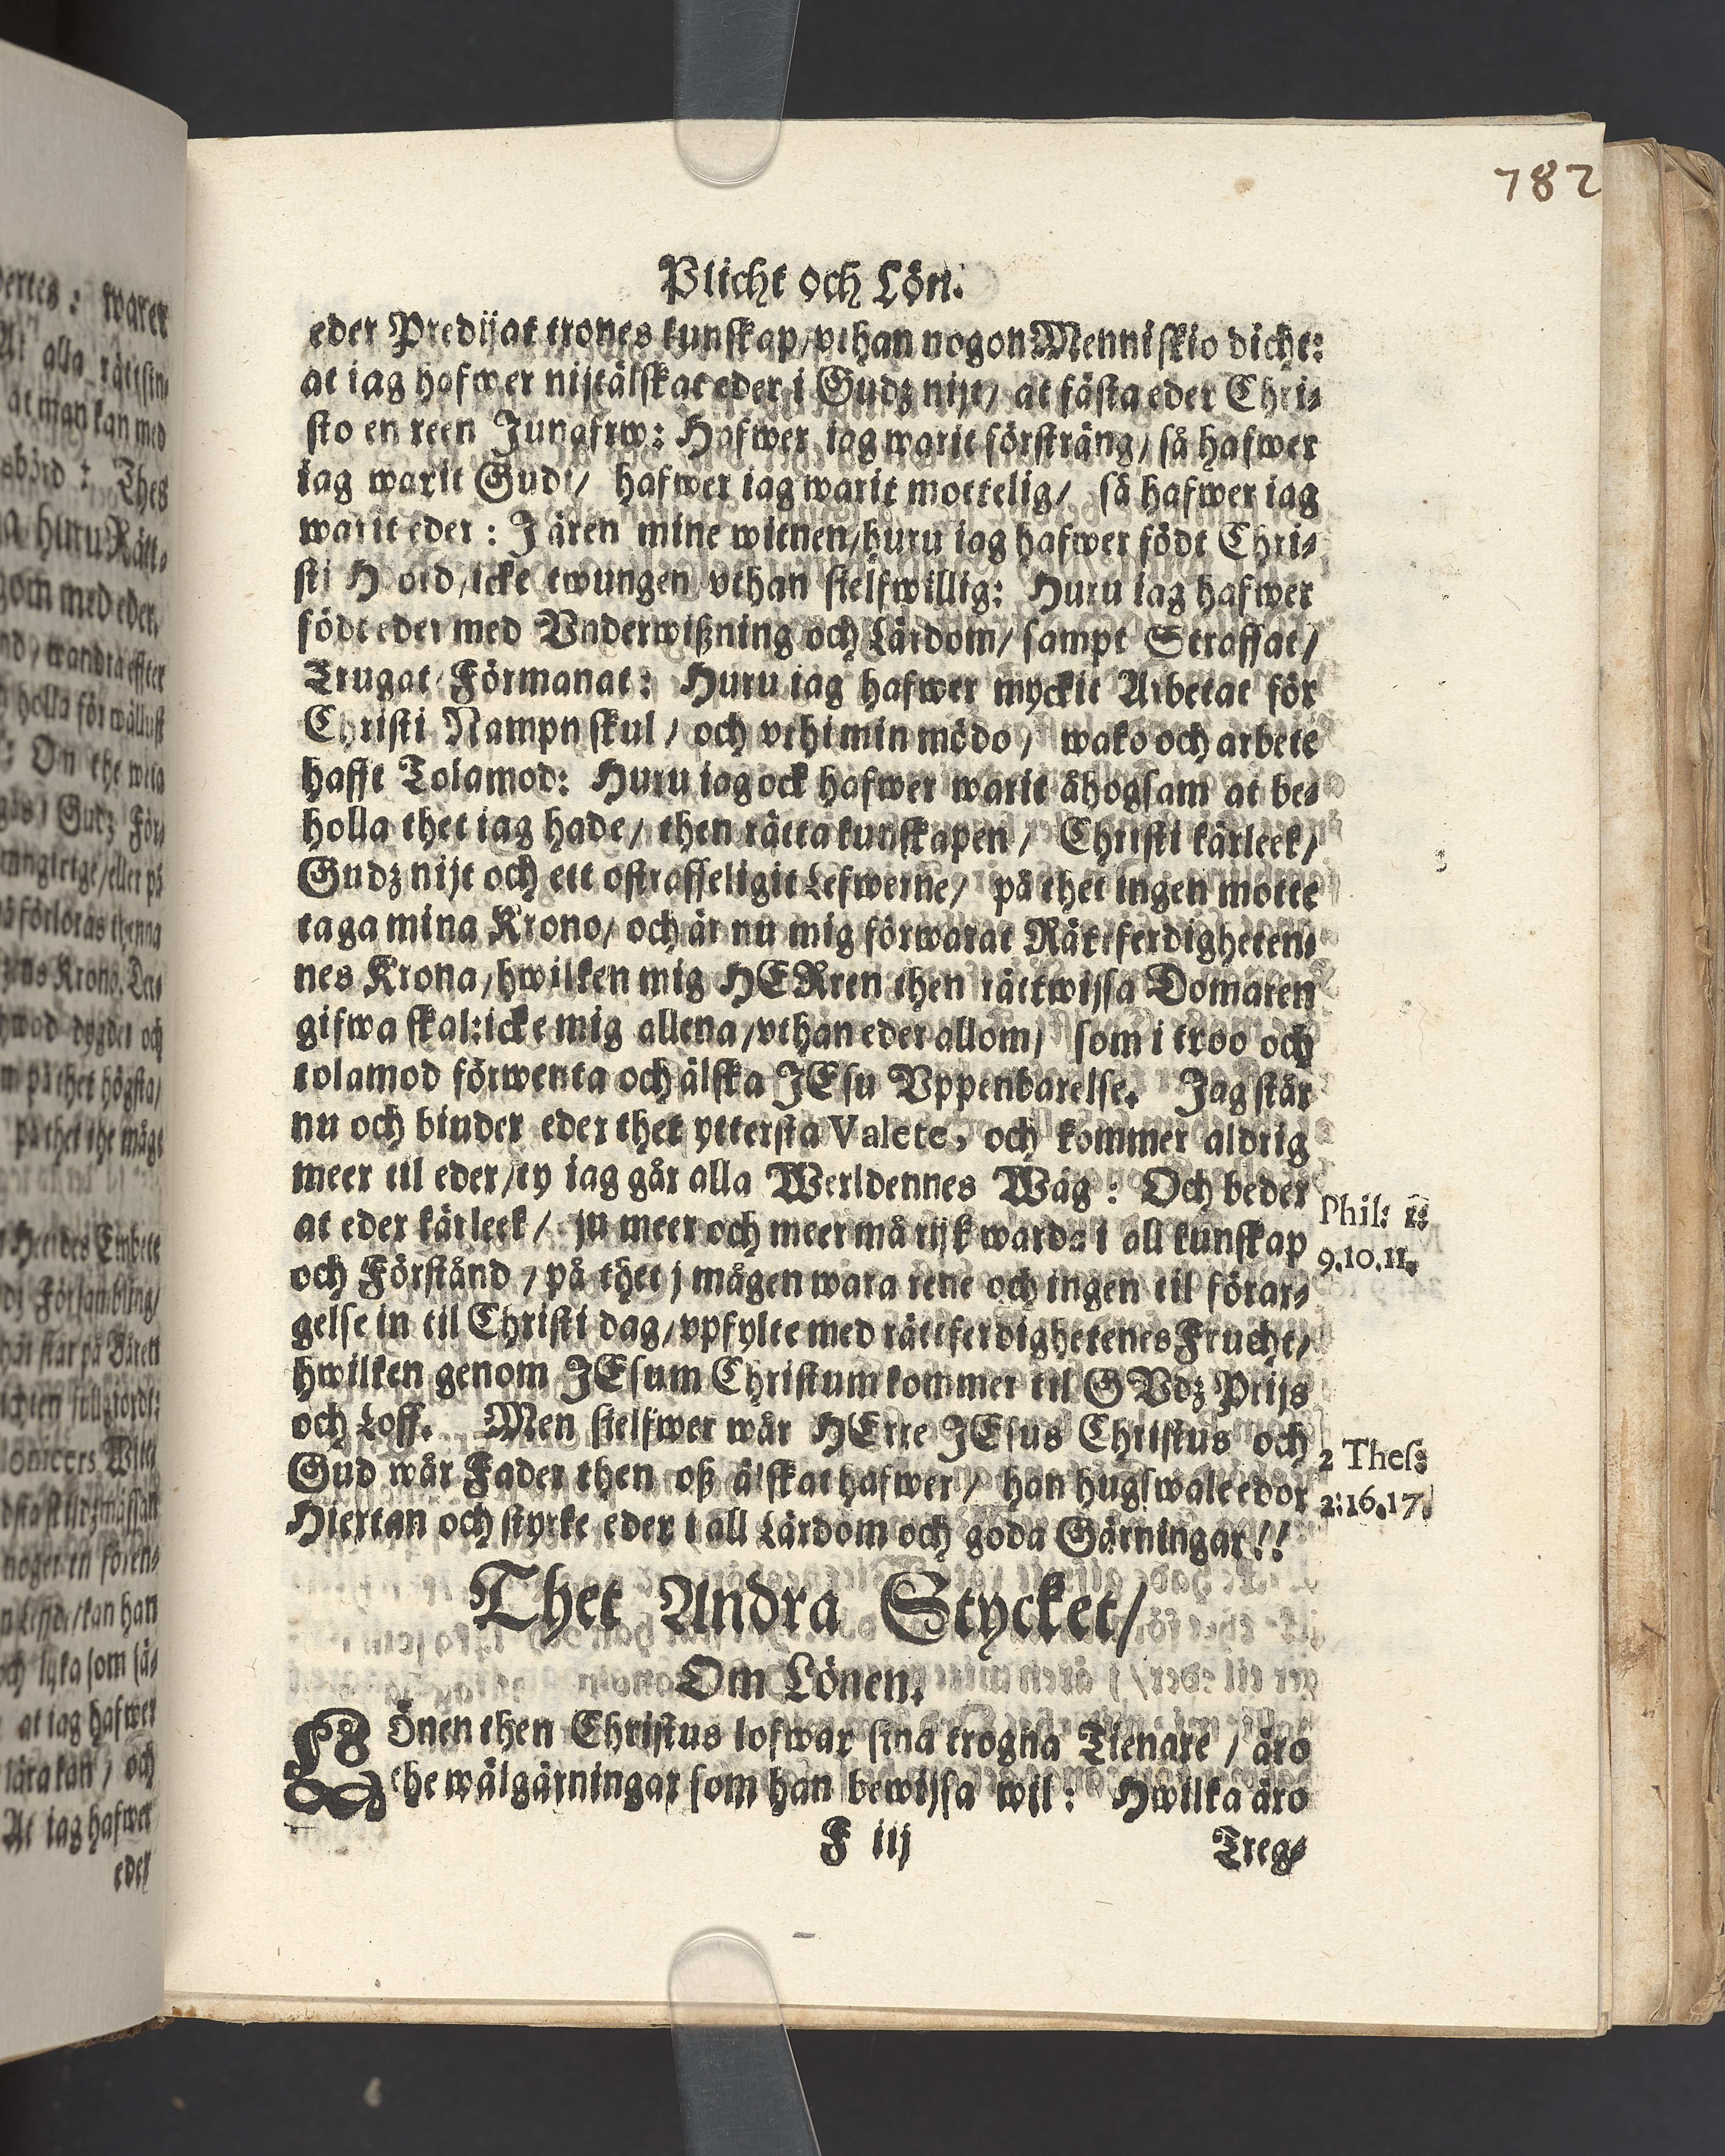 782
Plicht och Lön.
eder Predijat trones kunskap/vthan nogon Menniskio dicht:
at iag hafwer nijtälskat eder i Gudz nijt/ at fästa eder Chri-
sto en reen Jungfrw: Hafwer iag warit försträng/ så hafwer
iag warit Gudi/ hafwer iag warit mottelig/ så hafwer iag
warit eder: J ären mine witnen/huru iag hafwer födt Chri-
sti Hiord/icke twungen vthan sielfwillig: Huru iag hafwer
födt eder med Vnderwißning och Lärdom/ sampt Straffat/
Trugat Förmanat: Huru iag hafwer myckit Arbetat för
Christi Nampn skul/ och vthi min mödo/ wako och arbete
hafft Tolamod: Huru iag ock hafwer warit åhogsam at be-
holla thet iag hade/ then rätta kunskapen/ Christi kärleek/
Gudz nijt och ett ostraffeligit Lefwerne/ på thet ingen motte
taga mina Krono/ och är nu mig förwarat Rättferdigheten-
nes Krona/hwilken mig HERren then rättwijsa Domaren
gifwa skal:icke mig allena/vthan eder allom/ som i troo och
tolamod förwenta och älska JEsu Vppenbarelse. Jag står
nu och biuder eder thet yttersta Valete, och kommer aldrig
meer til eder/ty iag går alla Werldennes Wäg: Och beder
at eder kärleek/ ju meer och meer må rijk warda i all kunskap
och Förstånd/på thet j mågen wara rene och ingen til förar-
gelse in til Christi dag/vpfylte med rättferdighetenes Frucht/
hwilken genom JEsum Christum kommer til GVdz Prijs
och Loff. Men sielfwer wår HErre JEsus Christus och
Gud wår Fader then oß älskat hafwer/ han hugswale edor
Hiertan och styrke eder i all Lärdom och goda Gärningar!!
Phil: 1:
9.10.11.
2 Thes:
2:16.17.
Thet Andra Stycket/
Om Lönen.
LÖnen then Christus lofwar sina trogna Tienare/ äro
the wälgärningar som han bewijsa wil: Hwilka äro
F iij
Treg-